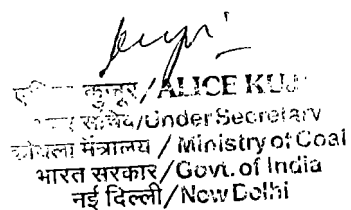 कुजूर/ALICE KUJ
/Under Secretary
कोयला मंत्रालय / Ministry of Coal
भारत सरकार/Govt. of India
नई दिल्ली/New Delhi